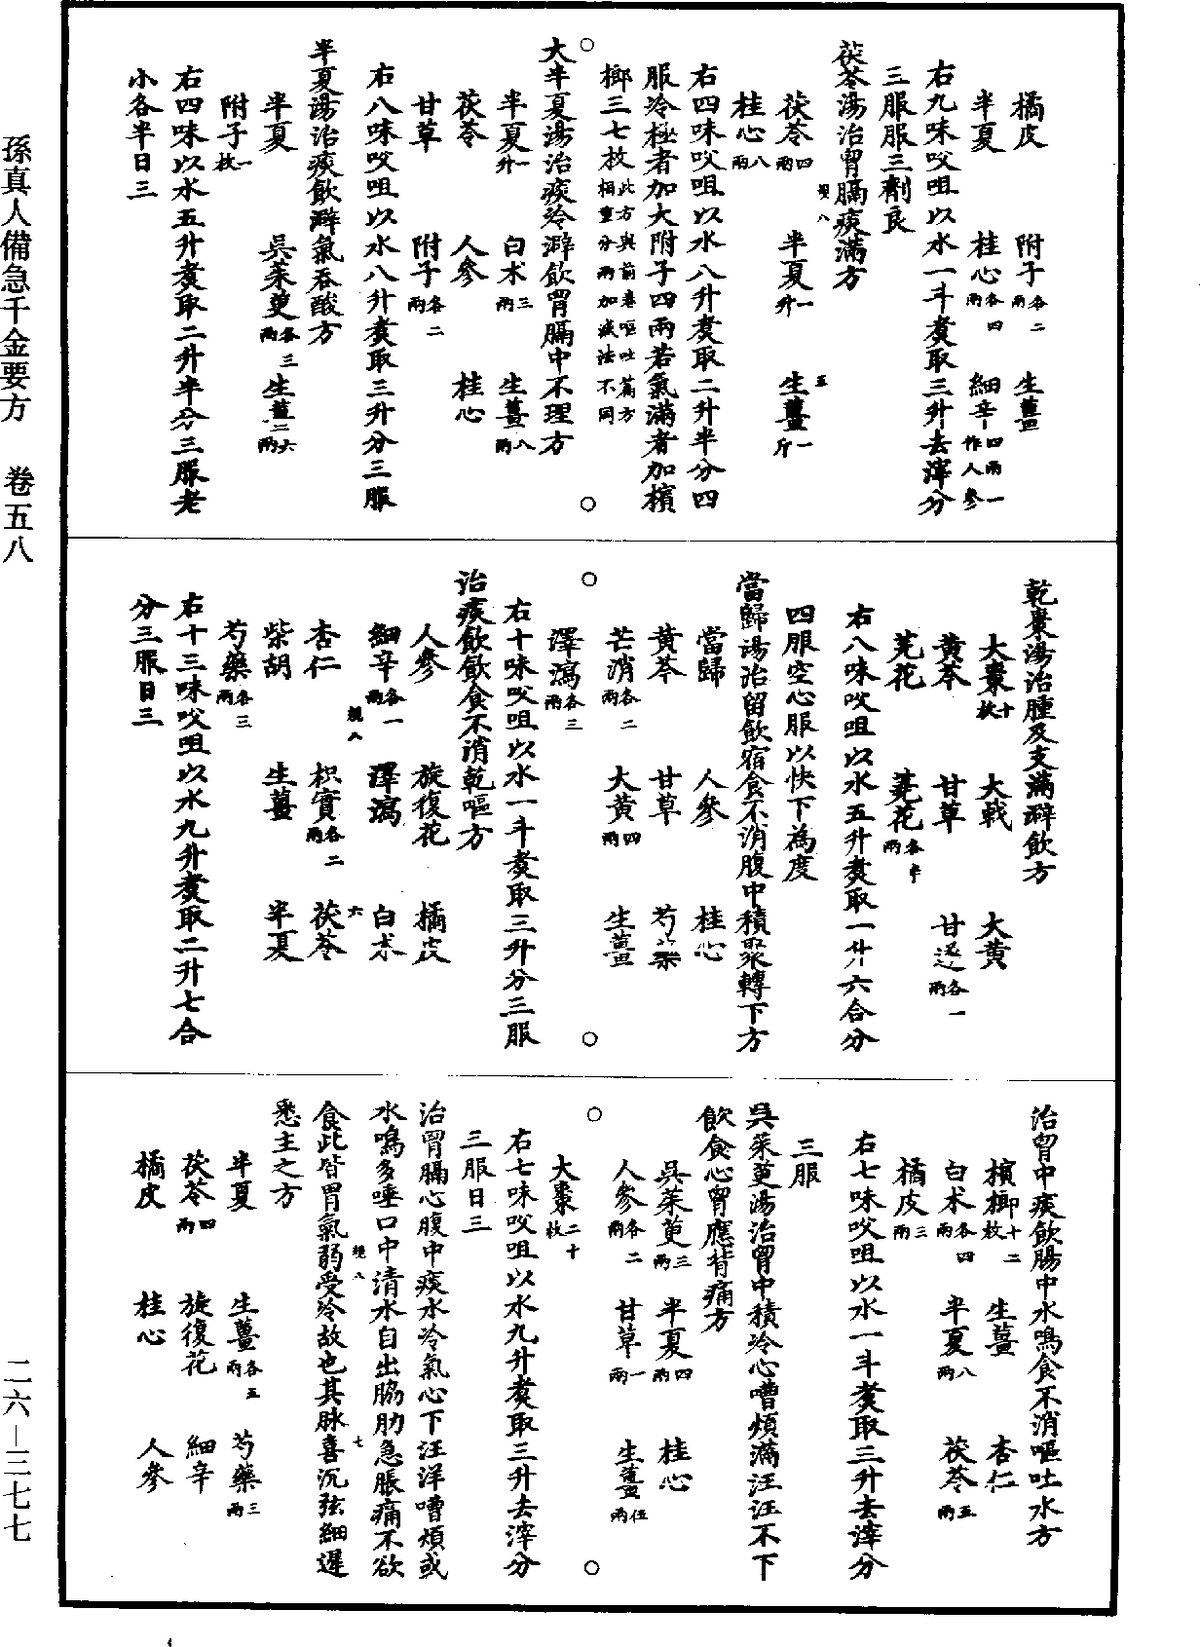 橘皮　附子各二兩　生薑
半夏　桂心各四兩　細辛四兩一作人參
右九味㕮咀以水一斗煮取三升去滓分
三服服三劑良
茯苓湯治胷膈痰滿方
茯苓四兩　半夏一升　生薑一斤
桂心八兩
右四味㕮咀以水八升煮取二升半分四
服冷極者加大附子四兩若氣滿者加檳
榔三七枚此方與前卷嘔吐篇方相重分兩加減法不同
大半夏湯治痰冷澼飲胷膈中不理方
半夏一升　白朮三兩　生薑八兩
茯苓　人參　桂心
甘草　附子各二兩
右八味㕮咀以水八升煮取三升分三服
半夏湯治痰飲澼氣吞酸方
半夏　吳茱萸各三兩　生薑六兩
附子一枚
右四味以水五升煮取二升半分三服老
小各半日三
乾棗湯治腫及支滿澼飲方
大棗十枚　大戟　大黃
黃芩　甘草　甘遂各一兩
芫花　蕘花各半兩
右八味㕮咀以水五升煮取一升六合分
四服空心服以快下為度
當歸湯治留飲宿食不消腹中積聚轉下方
當歸　人參　桂心
黃芩　甘草　芍藥
芒消各二兩　大黃四兩　生薑
澤瀉各三兩
右十味㕮咀以水一斗煮取三升分三服
治痰飲飲食不消乾嘔方
人參　旋復花　橘皮
細辛各一兩　澤瀉　白朮
杏仁　枳實各二兩　茯苓
柴胡　生薑　半夏
芍藥各三兩
右十三味㕮咀以水九升煮取二升七合
分三服日三
治胷中痰飲腸中水鳴食不消嘔吐水方
檳榔十二枚　生薑　杏仁
白朮各四兩　半夏八兩　茯苓五兩
橘皮三兩
右七味㕮咀以水一斗煮取三升去滓分
三服
吳茱萸湯治胷中積冷心嘈煩滿汪汪不下
飲食心胷應背痛方
吳茱萸三兩　半夏四兩　桂心
人參各二兩　甘草一兩　生薑伍兩
大棗二十枚
右七味㕮咀以水九升煮取三升去滓分
三服日三
治胃膈心腹中痰水冷氣心下汪洋嘈煩或
水鳴多唾口中清水自出脇肋急脹痛不欲
食此皆胃氣弱受冷故也其脉喜沉弦細遲
悉主之方
半夏　生薑各五兩　芍藥三兩
茯苓四兩　旋復花　細辛
橘皮　桂心　人參
孫真人備急千金要方　卷五八
二六－三七七